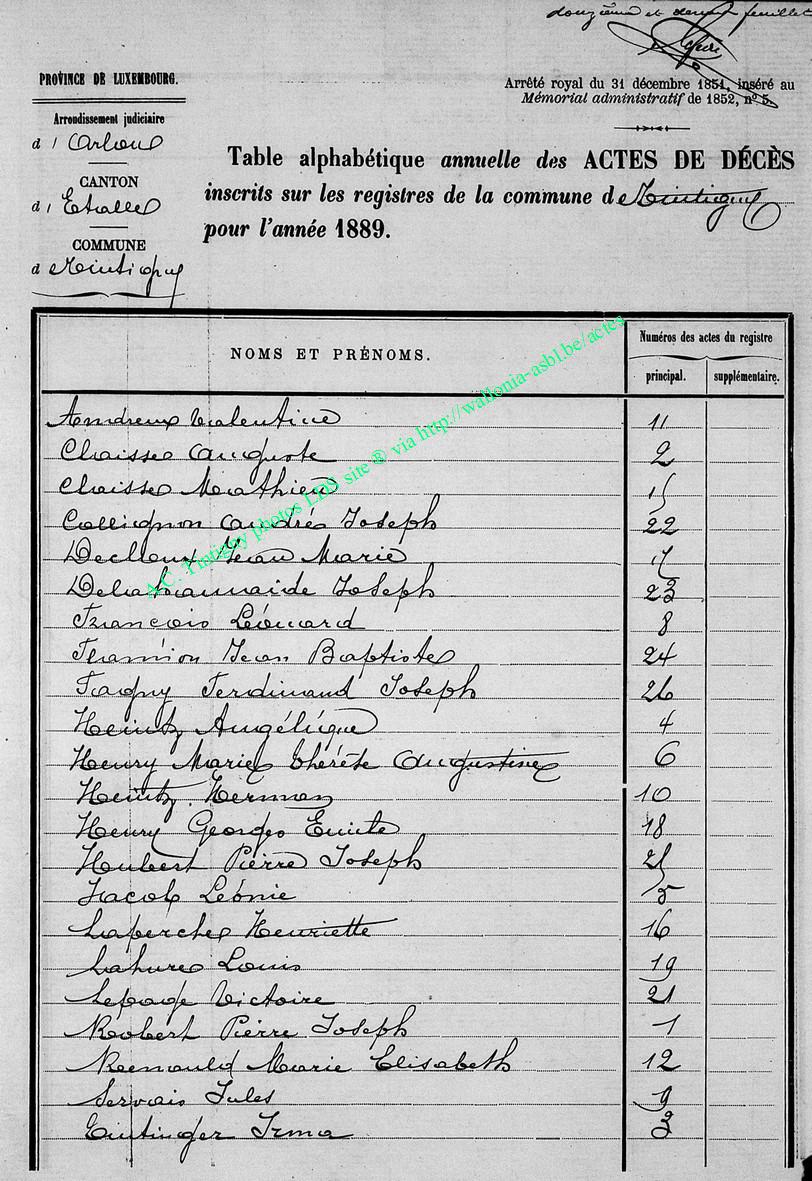 douzième et dernier feuillet
PROVINCE DE LUXEMBOURG.
Arrêté royal du 31 décembre 1851, inséré au
Mémorial administratif de 1852, nº 5.
Arrondissement judiciaire
d'Arlon
CANTON
d'Etalle
COMMUNE
de Tintigny
Table alphabétique annuelle des ACTES DE DÉCÈS
inscrits sur les registres de la commune de Tintigny
pour l'année 1889.
NOMS ET PRÉNOMS.
Numéros des actes du registre
principal. supplémentaire.
A.C. Tintigny photos LDS site ® via http://wallonia-asbl.be/actes
Andreux Valentine 11
Claisse Auguste 2
Claisse Mathieu 15
Collignon André Joseph 22
Jean Marie
Joseph 23
François Léonard 8
Flamion Jean Baptiste 24
Fagny Ferdinand Joseph 26
Heintz Angélique 4
Henry Marie Thérèse Augustine 6
Heintz Herman 10
Henry Georges Emile 18
Hubert Pierre Joseph
Jacob Léonie 5
Laperche Henriette 16
Lahure Louis 19
Lepage Victoire 21
Robert Pierre Joseph 1
Renauld Marie Elisabeth 12
Servais Jules 9
Tintinger Irma 3